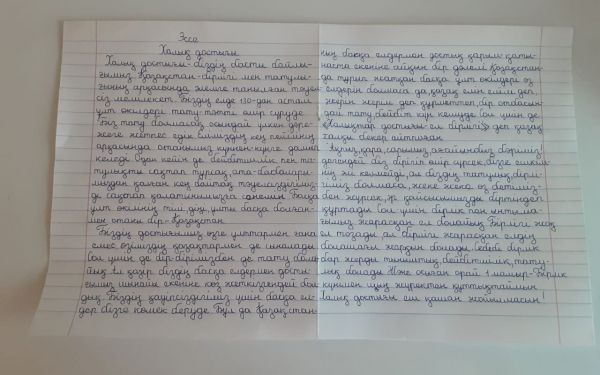 Эссе
Халық достығы
Халық достығы - біздің басты байлы-
ғымыз. Қазақстан - бірлігі мен татулы-
ғының арқасында әлемге танылған тәуел-
сіз мемлекет. Біздің елде 130-дан астам
ұлт өкілдері тату-тәтті өмір сүруде.
Біз тату болмасақ осындай үлкен дәре-
жеге жетпес едік. Еліміздің кең пейілінің
арқасында отанымыз күннен-күнге дамып
келеді. Одан кейін де бейбітшілік пен та-
тулықты сақтап тұрсақ, ата-бабалары-
мыздан қалған кең байтақ тәуелсіздігіміз-
ді сақтап қалатынымызға сенемін. Басқа
ұлт өкілінің тілі, діні, ұлты басқа болған-
мен отаны бір - Қазақстан.
Біздің достығымыз өзге ұлттармен ғана
емес өзіміздің қазақтармен де сыналады.
Бол үшін де бір-бірімізбен де тату бола-
йық. Ел қазір біздің басқа елдермен досты-
ғымыз шыңына екеніне көз жеткізгендей бол-
дық. Біздің қауіпсіздігіміз үшін басқа ел-
дер бізге көмек беруде. Бұл да Қазақстан-
ның басқа елдермен достық қарым-қаты-
наста екеніне айқын бір дәлел. Қазақстан-
да тұрып жатқан басқа ұлт өкілдері өз
елдерін болмаса да, қазақ елін елім деп,
жерін жерім деп құрметтеп, бір отбасын-
дай тату бейбіт күн кешуде. Бол үшін де
«Халықтар достығы - ел бірлігі» деп қазақ
халқы бекер айтпаған.
Ақпыз, қара, сарымыз ағайынбыз бәріміз!
дегендей біз бірігіп өмір сүрсек, бізге ешкім-
нің әлі келмейді, ал біздің татулық, бірлі-
гіміз болмаса, жеке-жеке өз бетімізі-
бен жүрсек, әр қайсысымызды біртіндеп
құртады. Бол үшін бірлік пен ынтыма-
ғымыз жарасқан ел болайық. Бірлігі жоқ
ел тозады, ал бірлігі жарасқан елдің
болашағы жарқын болады. Себебі бірлік
бар жерде тыныштық, бейбітшілік, тату-
лық болады. Және осыған орай 1 мамыр - Бірлік
күнімен шын жүректен құттықтаймын
Халық достығы еш қашан жойылмасын!